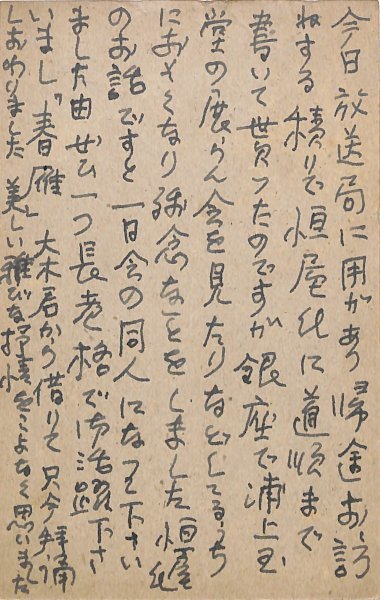 今日放送局に用があり帰途お訪
ねする積りで恒庵氏に道順まで
書いて貰ったのですが銀座で浦上玉
堂の展らん会を見たりなどしてるうち
におそくなり残念なことをしました恒庵氏
のお話ですと一日会の同人になって下さい
ました由ぜひ一つ長老格で御活躍下さ
いまし「春雁」大木君から借りて只今拝誦
しおわりました 美しい雅びな抒情をこよなく思いました